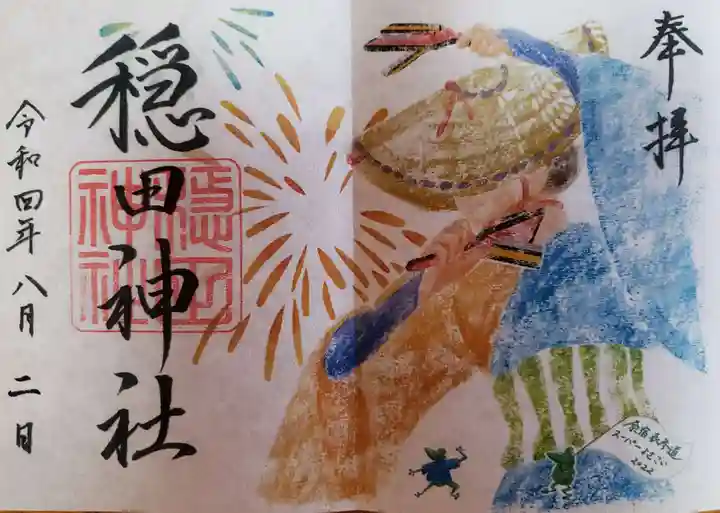 奉拝
穏田神社
隠田
神社
令和四年八月二日
原宿表参道
スーパーよさこい
2022